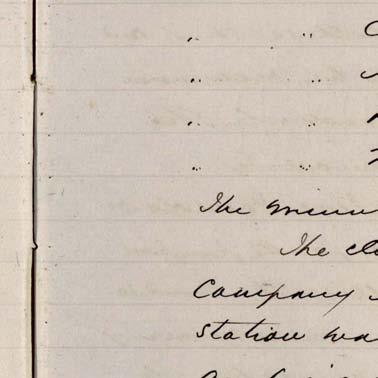 " "
" "
" "
" "
The minu
The cl
Company
station wa